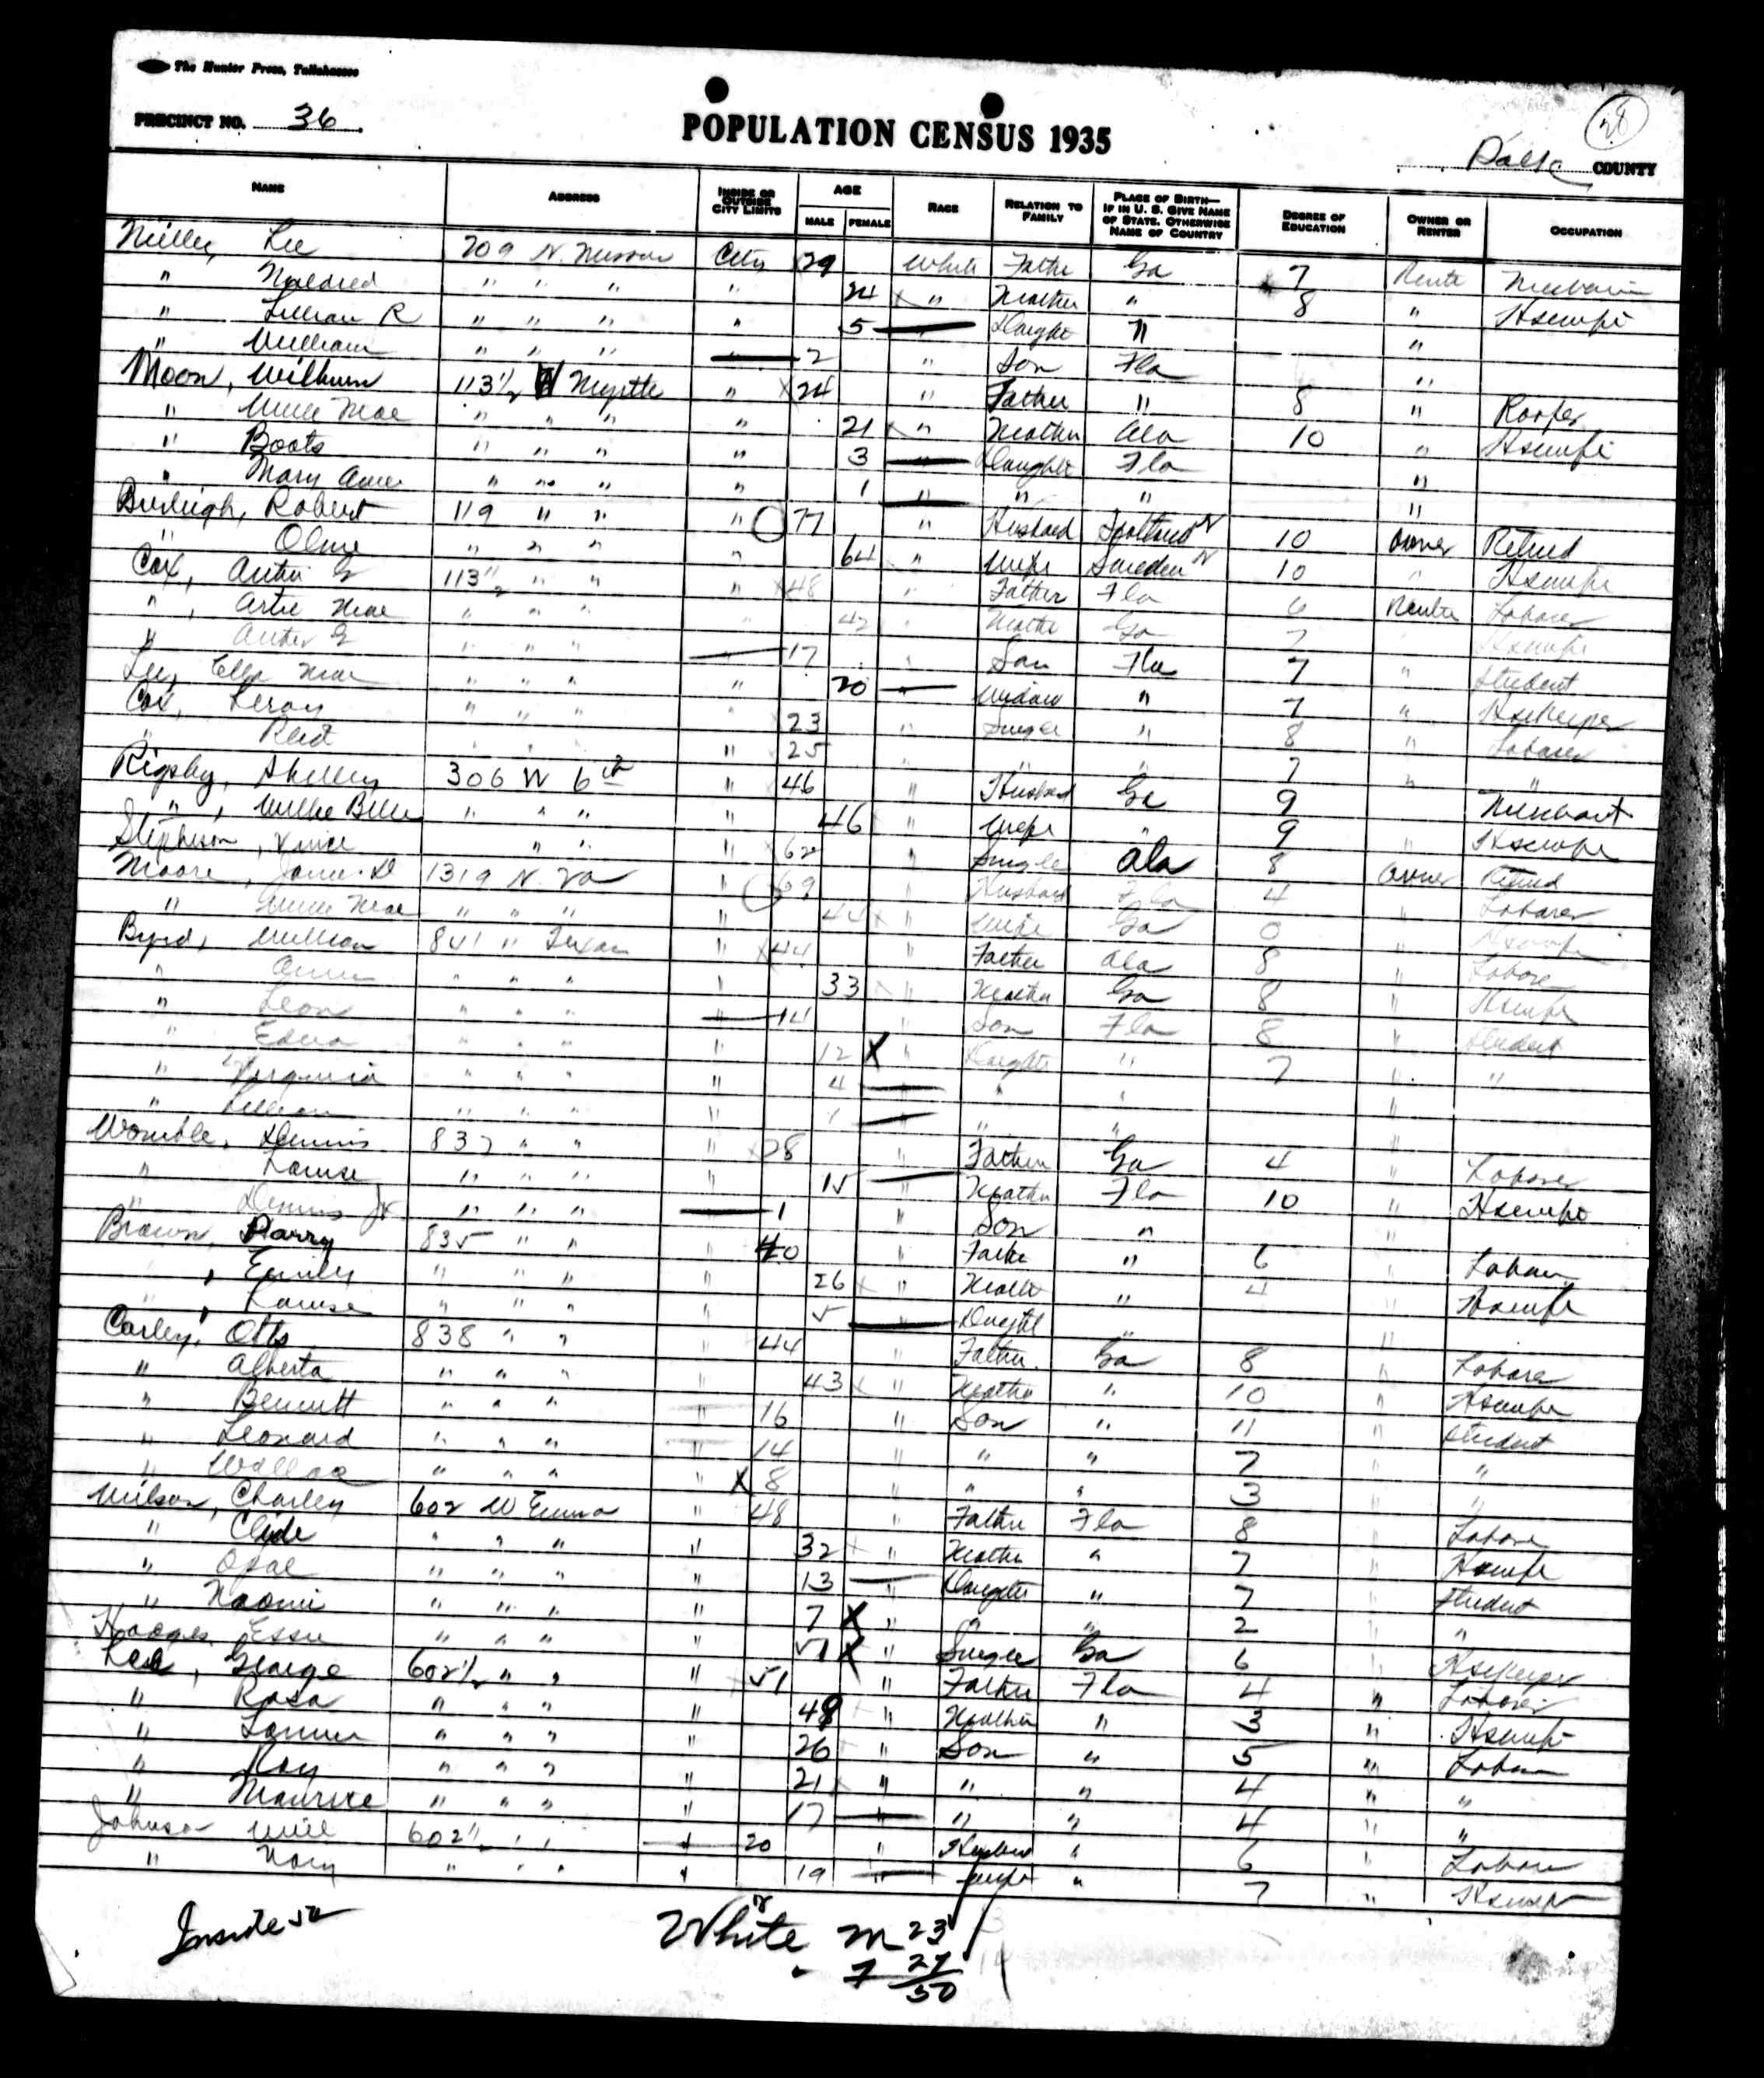 The Hunter Press, Tallahassee
PRECINCT NO. 36
POPULATION CENSUS 1935
28
COUNTY
NAME ADDRESS INSIDE OR OUTSIDE CITY LIMITS AGE MALE FEMALE RACE RELATION TO FAMILY PLACE OF BIRTH— IF IN U. S. GIVE NAME OF STATE. OTHERWISE NAME OF COUNTRY DEGREE OF EDUCATION OWNER OR RENTER OCCUPATION
Lee 709 N. City 29 White Father Ga 7
" " " " " 24 " Mother " 8 " Hsewife
" Lillian R " " " " 5 " " "
" William " " " " 2 " Son Fla "
Moon, Wilburn 113½ W Myrtle " 24 " Father " 8 " Roofer
" Mae " " " " 21 " Mother Ala 10 " Hsewife
" Boots " " " " 3 " Daughter Fla "
" Mary " " " " 1 " " " "
Burleigh, Robert 119 " " " 77 " Husband Scotland 10 Owner Retired
" " " " " 64 " Wife Sweden 10 " Hsewife
Cox, G 113½ " " " 48 " Father Fla 6 Renter Laborer
" , Artie Mae " " " " 42 " Mother Ga 7 " Hsewife
" G " " " " 17 " Son Fla 7 " Student
Lee, Ella Mae " " " " 20 " Widow " 7 " Hsekeeper
Cox, Leroy " " " " 23 " Single " 8 " Laborer
" " " " " 25 " " " 7 " "
Rigsby, Shelley 306 W 6th " 46 " Husband Ga 9 Merchant
" , Willie Belle " " " " 46 " Wife " 9 " Hsewife
62 " Single Ala 8 Owner Retired
Moore, D 1319 N. " 69 " Husband Fla 4 " Laborer
" Mae " " " " 44 " Wife Ga 0 " Hsewife
Byrd, William 841 " Texas " 44 " Father Ala 8 " Laborer
" " " " " 33 " Mother Ga 8 " Hsewife
" Leon " " " " 14 " Son Fla 8 " Student
" Edna " " " " 12 X " Daughter " 7 " "
" Virginia " " " " 4 " " " "
" Lillian " " " " 1 " " " "
Womble, Dennis 837 " " " 28 " Father Ga 4 " Laborer
" Louise " " " " 15 " Mother Fla 10 " Hsewife
" Dennis Jr " " " " 1 " Son " "
Brown, 835 " " " 40 " Father " 6 " Laborer
" , Emily " " " " 26 " Mother " 4 " Hsewife
" , Louise " " " " 5 " Daughter " "
Carley, Otto 838 " " " 44 " Father Ga 8 " Laborer
" Alberta " " " " 43 " Mother " 10 " Hsewife
" Bennett " " " " 16 " Son " 11 " Student
" Leonard " " " " 14 " " " 7 " "
" Wallace " " " " X 8 " " " 3 " "
Wilson, Charley 602 W Emma " 48 " Father Fla 8 " Laborer
" Clyde " " " " 32 " Mother " 7 " Hsewife
" Opal " " " " 13 " Daughter " 7 " Student
" Naomi " " " " 7 X " " " 2 " "
Hodges Essie " " " " 51 X " Single Ga 6 " Hsekeeper
Lee, George 602½ " " " 51 " Father Fla 4 " Laborer
" Rosa " " " " 49 " Mother " 3 " Hsewife
" " " " " 26 " Son " 5 " Laborer
" Roy " " " " 21 " " " 4 " "
" Maurice " " " " 17 " " " 4 " "
Johnson Will 602½ " " " 20 " Husband " 6 " Laborer
" " " " " 19 " Wife " 7 " Hsewife
Inside
White M 23
" F 27
50